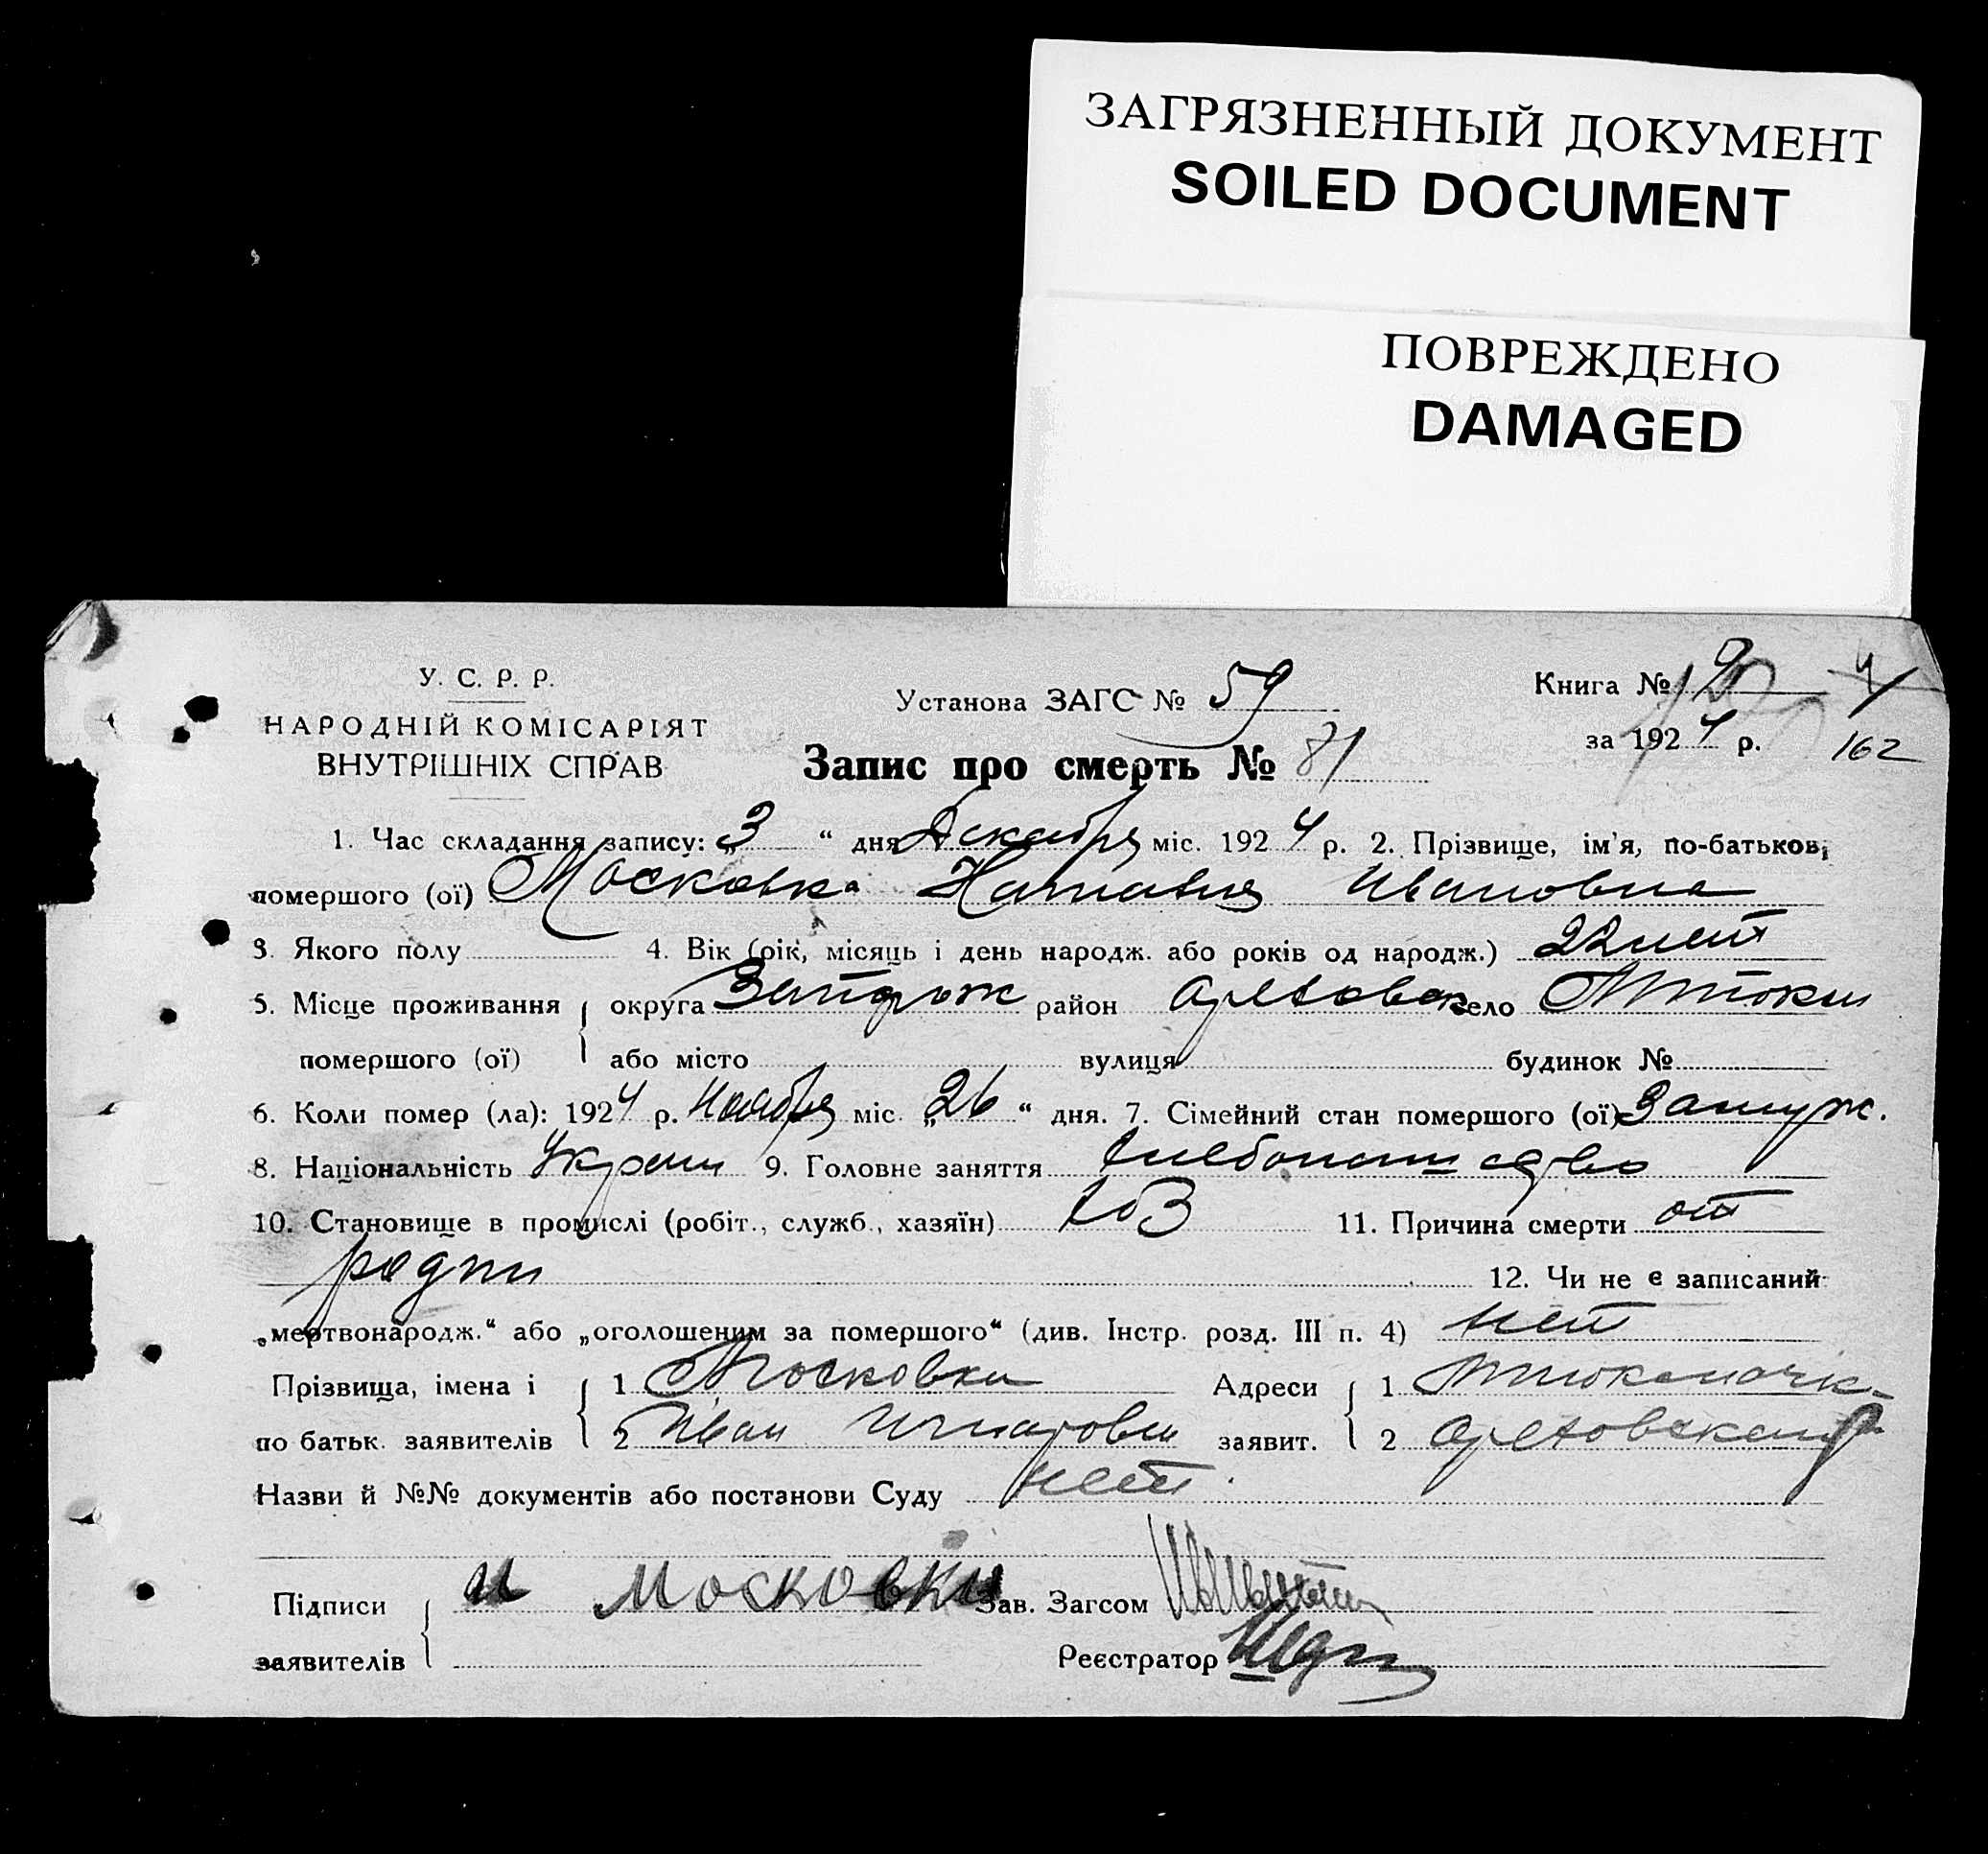 ЗАГРЯЗНЕННЫЙ ДОКУМЕНТ
SOILED DOCUMENT
ПОВРЕЖДЕНО
DAMAGED
У. С. Р. Р.
НАРОДНІЙ КОМІСАРІЯТ
ВНУТРІШНІХ СПРАВ
Установа ЗАГС № 59
Запис про смерть № 81
Книга №
за 1924 р.
162
1. Час складання запису: „3“ дня Декабря міс. 1924 р. 2. Прізвище, ім'я, по-батькові
помершого (ої) Московка Наталия Ивановна
3. Якого полу 4. Вік (рік, місяць і день народж. або років од народж.) 22 лет
5. Місце проживання округа Запорож район Ореховск село
помершого (ої) або місто вулиця будинок №
6. Коли помер (ла): 1924 р. Ноября міс. „26“ дня. 7. Сімейний стан помершого (ої) Замуж.
8. Національність Украин 9. Головне заняття хлебопашество
10. Становище в промислі (робіт., служб., хазяїн) хоз 11. Причина смерти от
родии 12. Чи не є записаний
„мертвонародж.“ або „оголошеним за помершого“ (див. Інстр. розд. III п. 4) нет
Прізвища, імена і 1 Московка Адреси 1
по батьк. заявителів 2 Иван заявит. 2 Ореховский р
Назви й №№ документів або постанови Суду нет
Підписи И Московки Зав. Загсом
заявителів Реєстратор